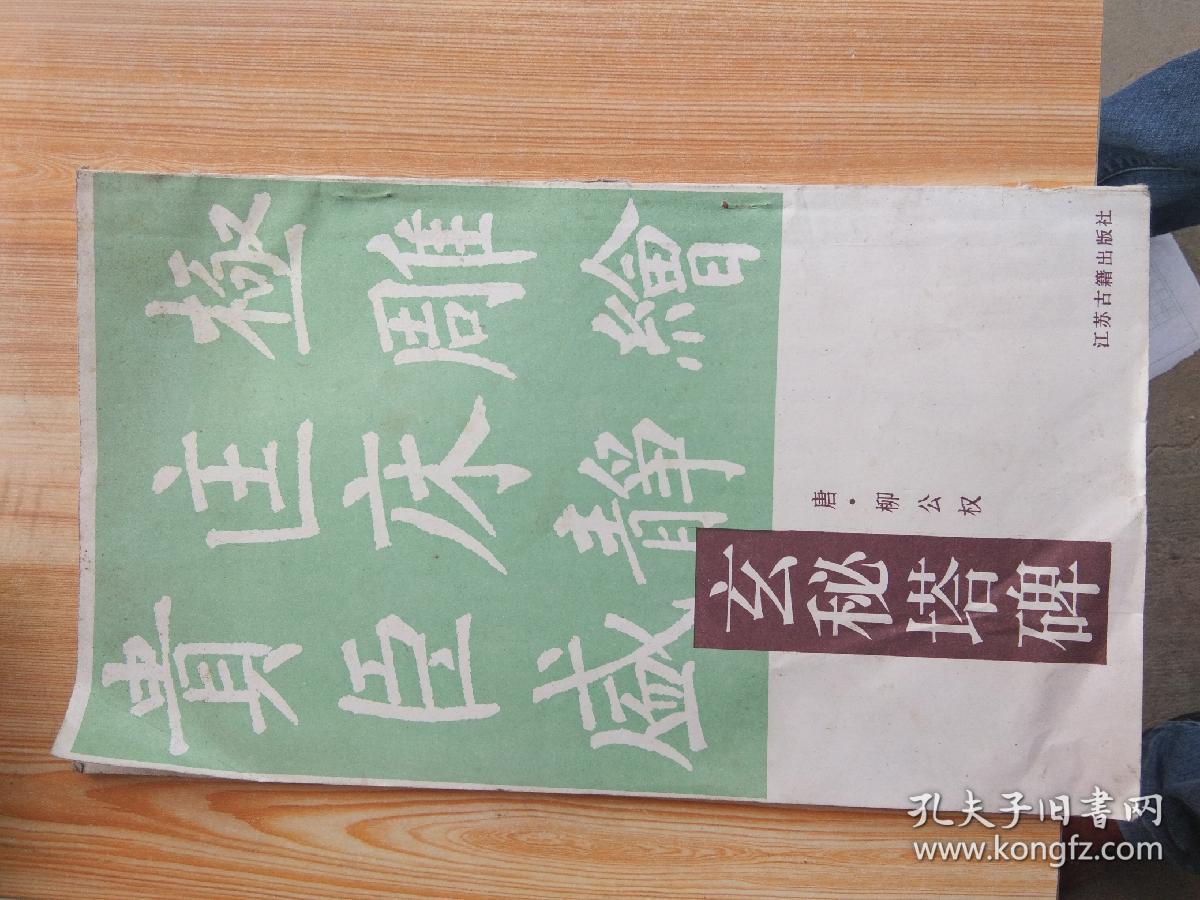 極雕繪
匡床靜
貴臣盛
唐·柳公权
玄秘塔碑
江苏古籍出版社
孔夫子旧書网
www.kongfz.com